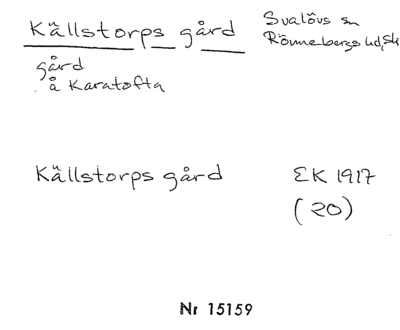 Källstorps gård
Svalövs sn
Rönnebergs hd, Sk
gård
å Karatofta
Källstorps gård
EK 1917
(20)
Nr 15159